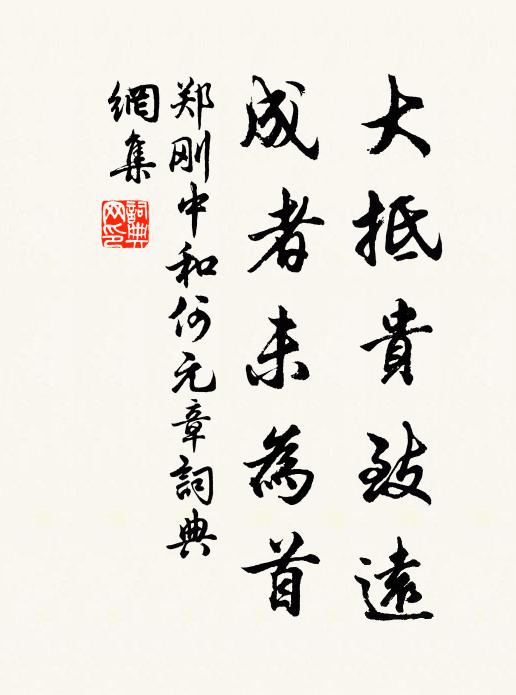 大抵貴致遠
成者未為首
郑刚中和何元章詞典
網集
詞典网印